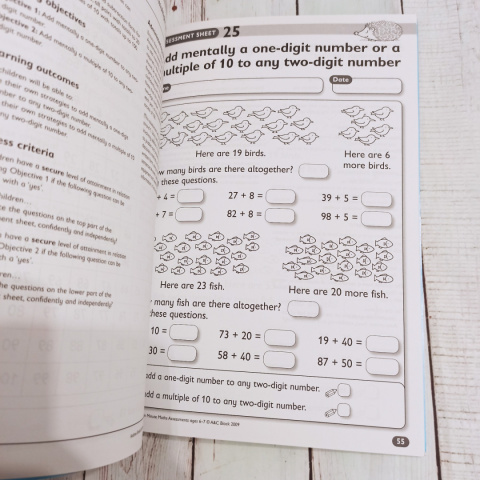 objectives
Objective 1: Add mentally a one-digit number
digit number
Objective 2: Add mentally a multiple of 10 to any two-
digit number
learning outcomes
children will be able to:
their own strategies to add mentally a one-digit
number to any two-digit number
their own strategies to add mentally a multiple of 10
any two-digit number
success criteria
children have a secure level of attainment in relation
Objective 1 if the following question can be
with a 'yes'.
children...
the questions on the top part of the
sheet, confidently and independently?
have a secure level of attainment in relation
Objective 2 if the following question can be
with a 'yes'.
children...
the questions on the lower part of the
sheet, confidently and independently?
ASSESSMENT SHEET 25
Add mentally a one-digit number or a
multiple of 10 to any two-digit number
Date
Here are 19 birds.
Here are 6
more birds.
How many birds are there altogether?
these questions.
+ 4 =
27 + 8 =
39 + 5 =
+ 7 =
82 + 8 =
98 + 5 =
Here are 23 fish.
Here are 20 more fish.
many fish are there altogether?
these questions.
10 =
73 + 20 =
19 + 40 =
30 =
58 + 40 =
87 + 50 =
add a one-digit number to any two-digit number.
add a multiple of 10 to any two-digit number.
Maths Assessments ages 6-7 © A&C Black 2009
55